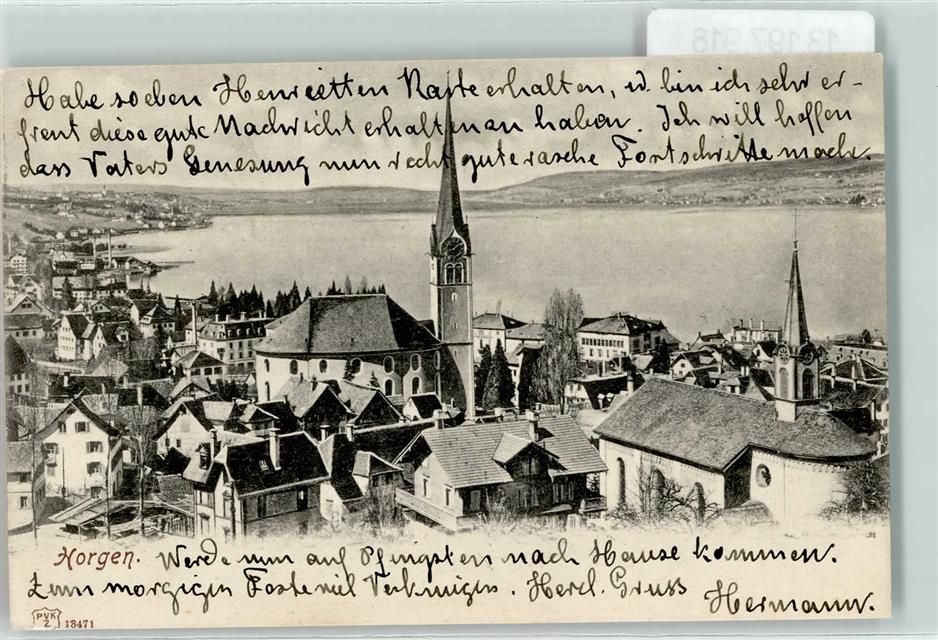 13.197.918
Habe soeben Henrietten Karte erhalten, u. bin ich sehr er-
freut diese gute Nachricht erhalten zu haben. Ich will hoffen
dass Vaters Genesung nun recht gute rasche Fortschritte mach.
Horgen. Werde nun auf Pfingsten nach Hause kommen.
Zum morgigen Feste viel Vergnügen. Herzl. Gruss
Hermann.
PVK
Z
18471